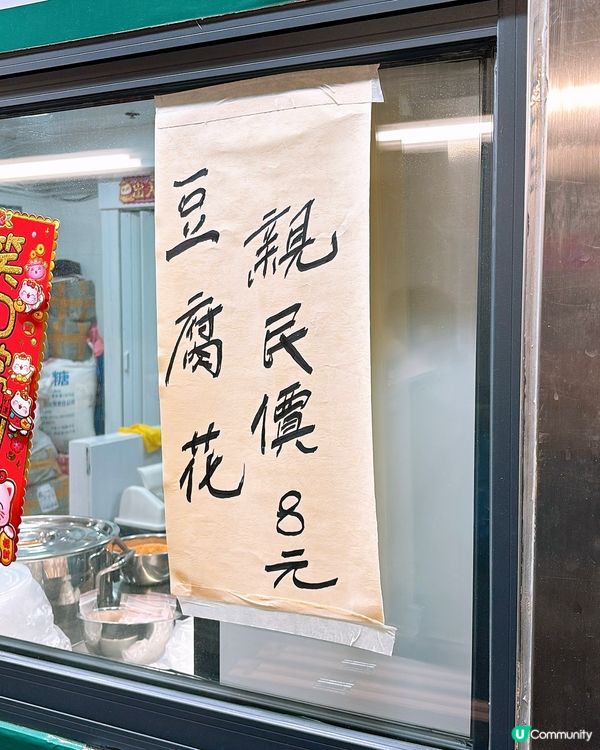 親民價8元
豆腐花
笑口
糖
出入
U Community